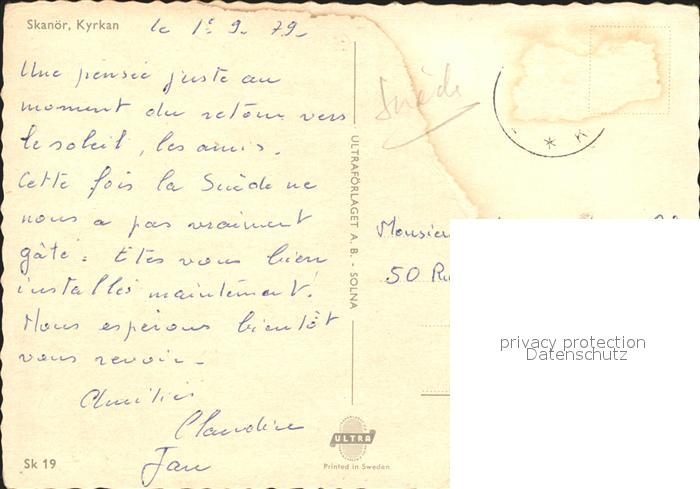 Skanör, Kyrkan
le 1º 9. 79.
Une pensée juste au
moment du retour vers
le soleil, les amis.
Cette fois la Suède ne
nous a pas vraiment
gâté. Etes vous bien
installés maintenant?
Nous espérons bientôt
vous revoir.
Amitiés
Claudine
Jan
Sk 19
ULTRAFÖRLAGET A. B. - SOLNA
ULTRA
Printed in Sweden
Suède
K
Monsieu
50 Ru
privacy protection
Datenschutz